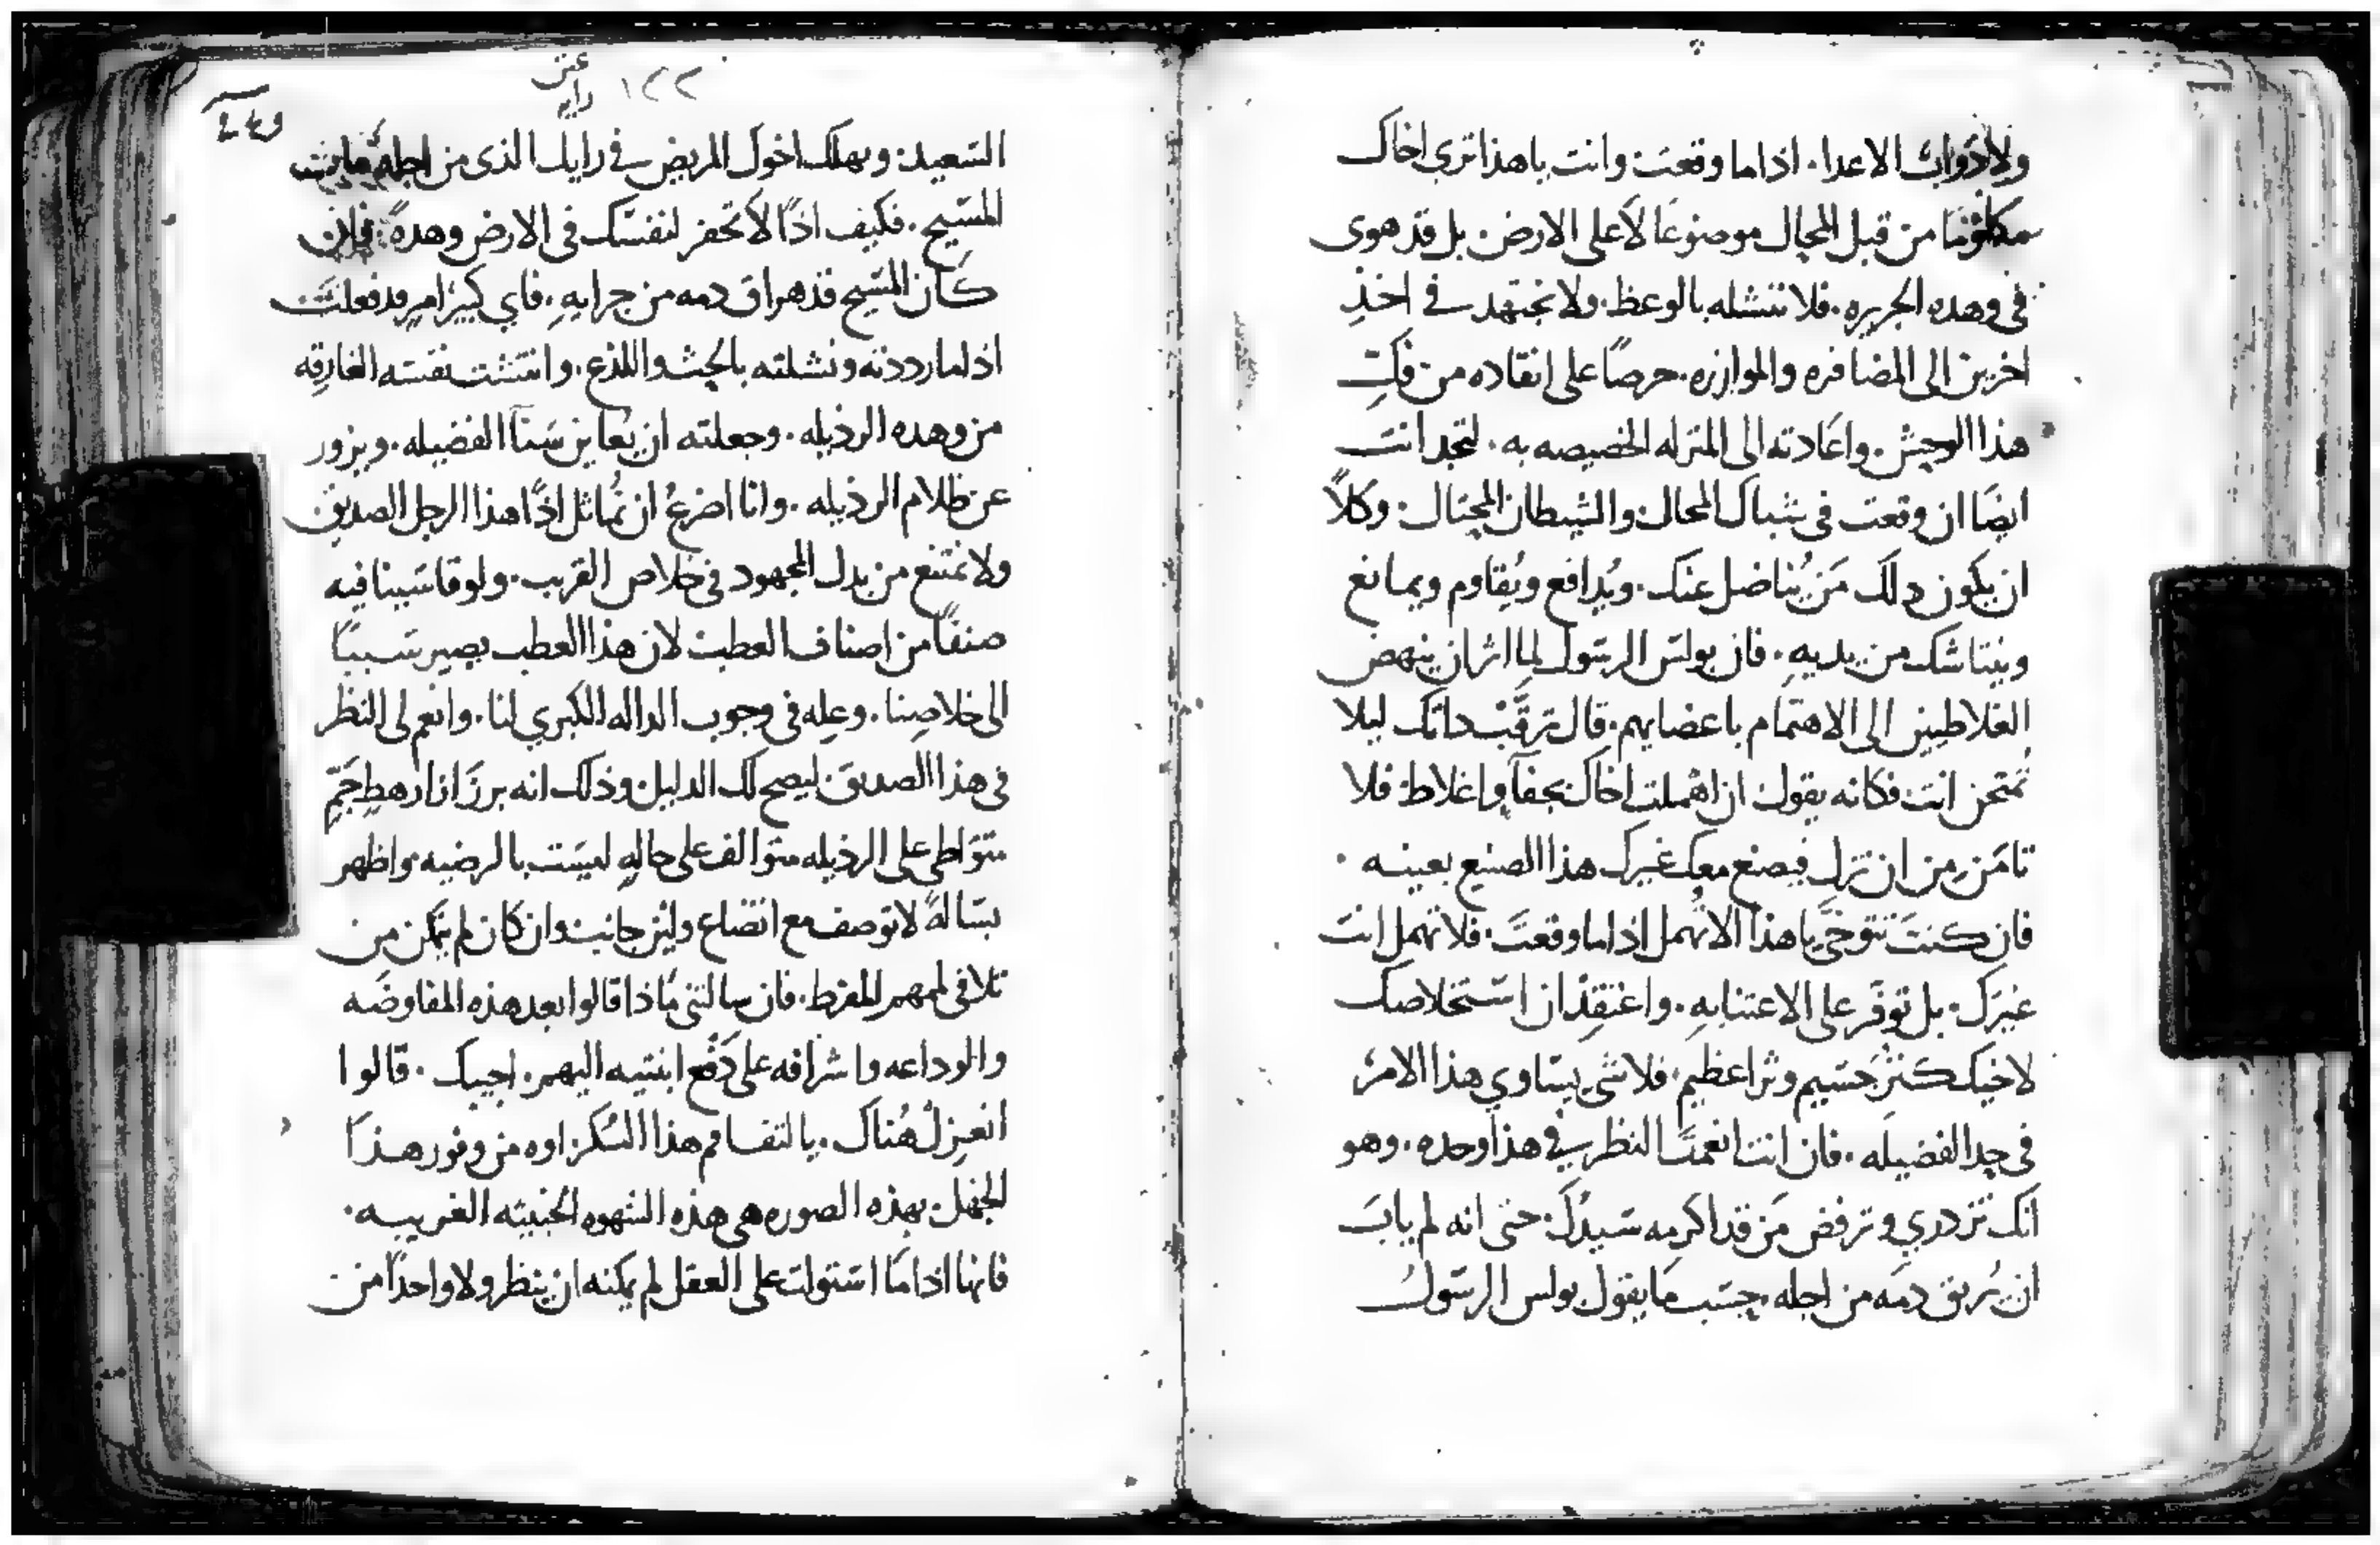 ولادواب الاعدا. اذاما وقعت وانت ياهذا ترى اخاك
مكلومًا من قبل المحال موضوعًا لاعلى الارض بل قد هوى
فى وهده الجريره. فلا تنشله بالوعظ. ولا تجتهد في اخذِ
اخرين الى المضافره والموازره. حرصًا على انقاده من فكِّ
هذا الوحش. واعادته الى المنزله الخصيصه به. لتجد انت
ايضًا ان وقعت فى شباك المحال والشيطان المحتال. وكلاً
ان يكون دلك مَن يُناضل عنك. ويُدافع ويُقاوم ويمانع
وينتاشك من يديهِ. فان بولس الرسول لما اثر ان ينهض
الغلاطيين الى الاهتمام باعضايهم. قال ترقَّبْ داتك ليلا
تُمتحن انت فكانه يقول ان اهملت اخاك بجفآ واغلاط فلا
تامَن مِن ان تزل فيصنع معك غيرك هذا الصنيع بعينه.
فان كنتَ تتوخَّى ياهذا الا تُهمل اذاما وقعتَ. فلا تهمل انتَ
غيرَك. بل توفَّر على الاعتنا بهِ. واعتقِدْ ان استخلاصك
لاخيك كنزٌ جسيم وثرا عظيم. فلا شى يساوي هذا الامرُ
فى حِد الفضيلَه. فان انت انعمتَ النظر في هذا وحده. وهو
انك تزدري وترفض مَن قد اكرمه سَيدُك. حتى انه لم يابَ
ان يُريق دمَه من اجله. حسَب مَا يقول بولس الرسولُ
١٢٢
عتق
رايه
السَّعيد. ويهلك اخوك المريض في رايك الذى من اجله مات
المسيح. فكيف اذًا لاتحفز لنفسَك فى الارض وهدةً فان
كان المسيح قد هراق دمه من جرايهِ. فاي كبيرُ امرٍ قد فعلتَ
اذاما رددته ونشلته بالحث واللذع. وانتشت نفسَه الغارقه
من وهده الرذيله. وجعلته ان يُعاين سَنآ الفضيله. ويزور
عن ظلام الرذيله. وانا اضرعُ ان تُماثل اذًا هذا الرجل الصديق
ولا تمتنع من بدل المجهود فى خلاص القريب. ولو قاسَينا فيه
صنفًا من اصناف العطب لان هذا العطب يصير سَببًا
الى خلاصِنا. وعِله فى وجوب الداله الكبري لنا. وانعم لى النظر
فى هذا الصديق. ليصح لك الدليل وذلك انه برزَ ازا رهطٍ جَمٍّ
متوَاطى على الرذيله متوَالف على حالهِ ليسَت بالرضيه واظهر
بسَالةً لا توصف مع اتضاع ولين جانب وان كان لم يتمكن من
تلافى لممهم المفرط. فان سالتنى مَاذا قالوا بعد هذه المفاوضَه
والوداعه واشرافه على دَفْع ابنتيه اليهم. اجيبك. قالوا
انعزِلْ هُناك. يا لتفاقم هذا السُكر. اوه من وفور هذا
الجهل. بهذه الصوره هى هذه الشهوه الخبيثه الغريبه.
فانها اذا مَا استولت على العقل لم يمكنه ان ينظر ولا واحدًا من